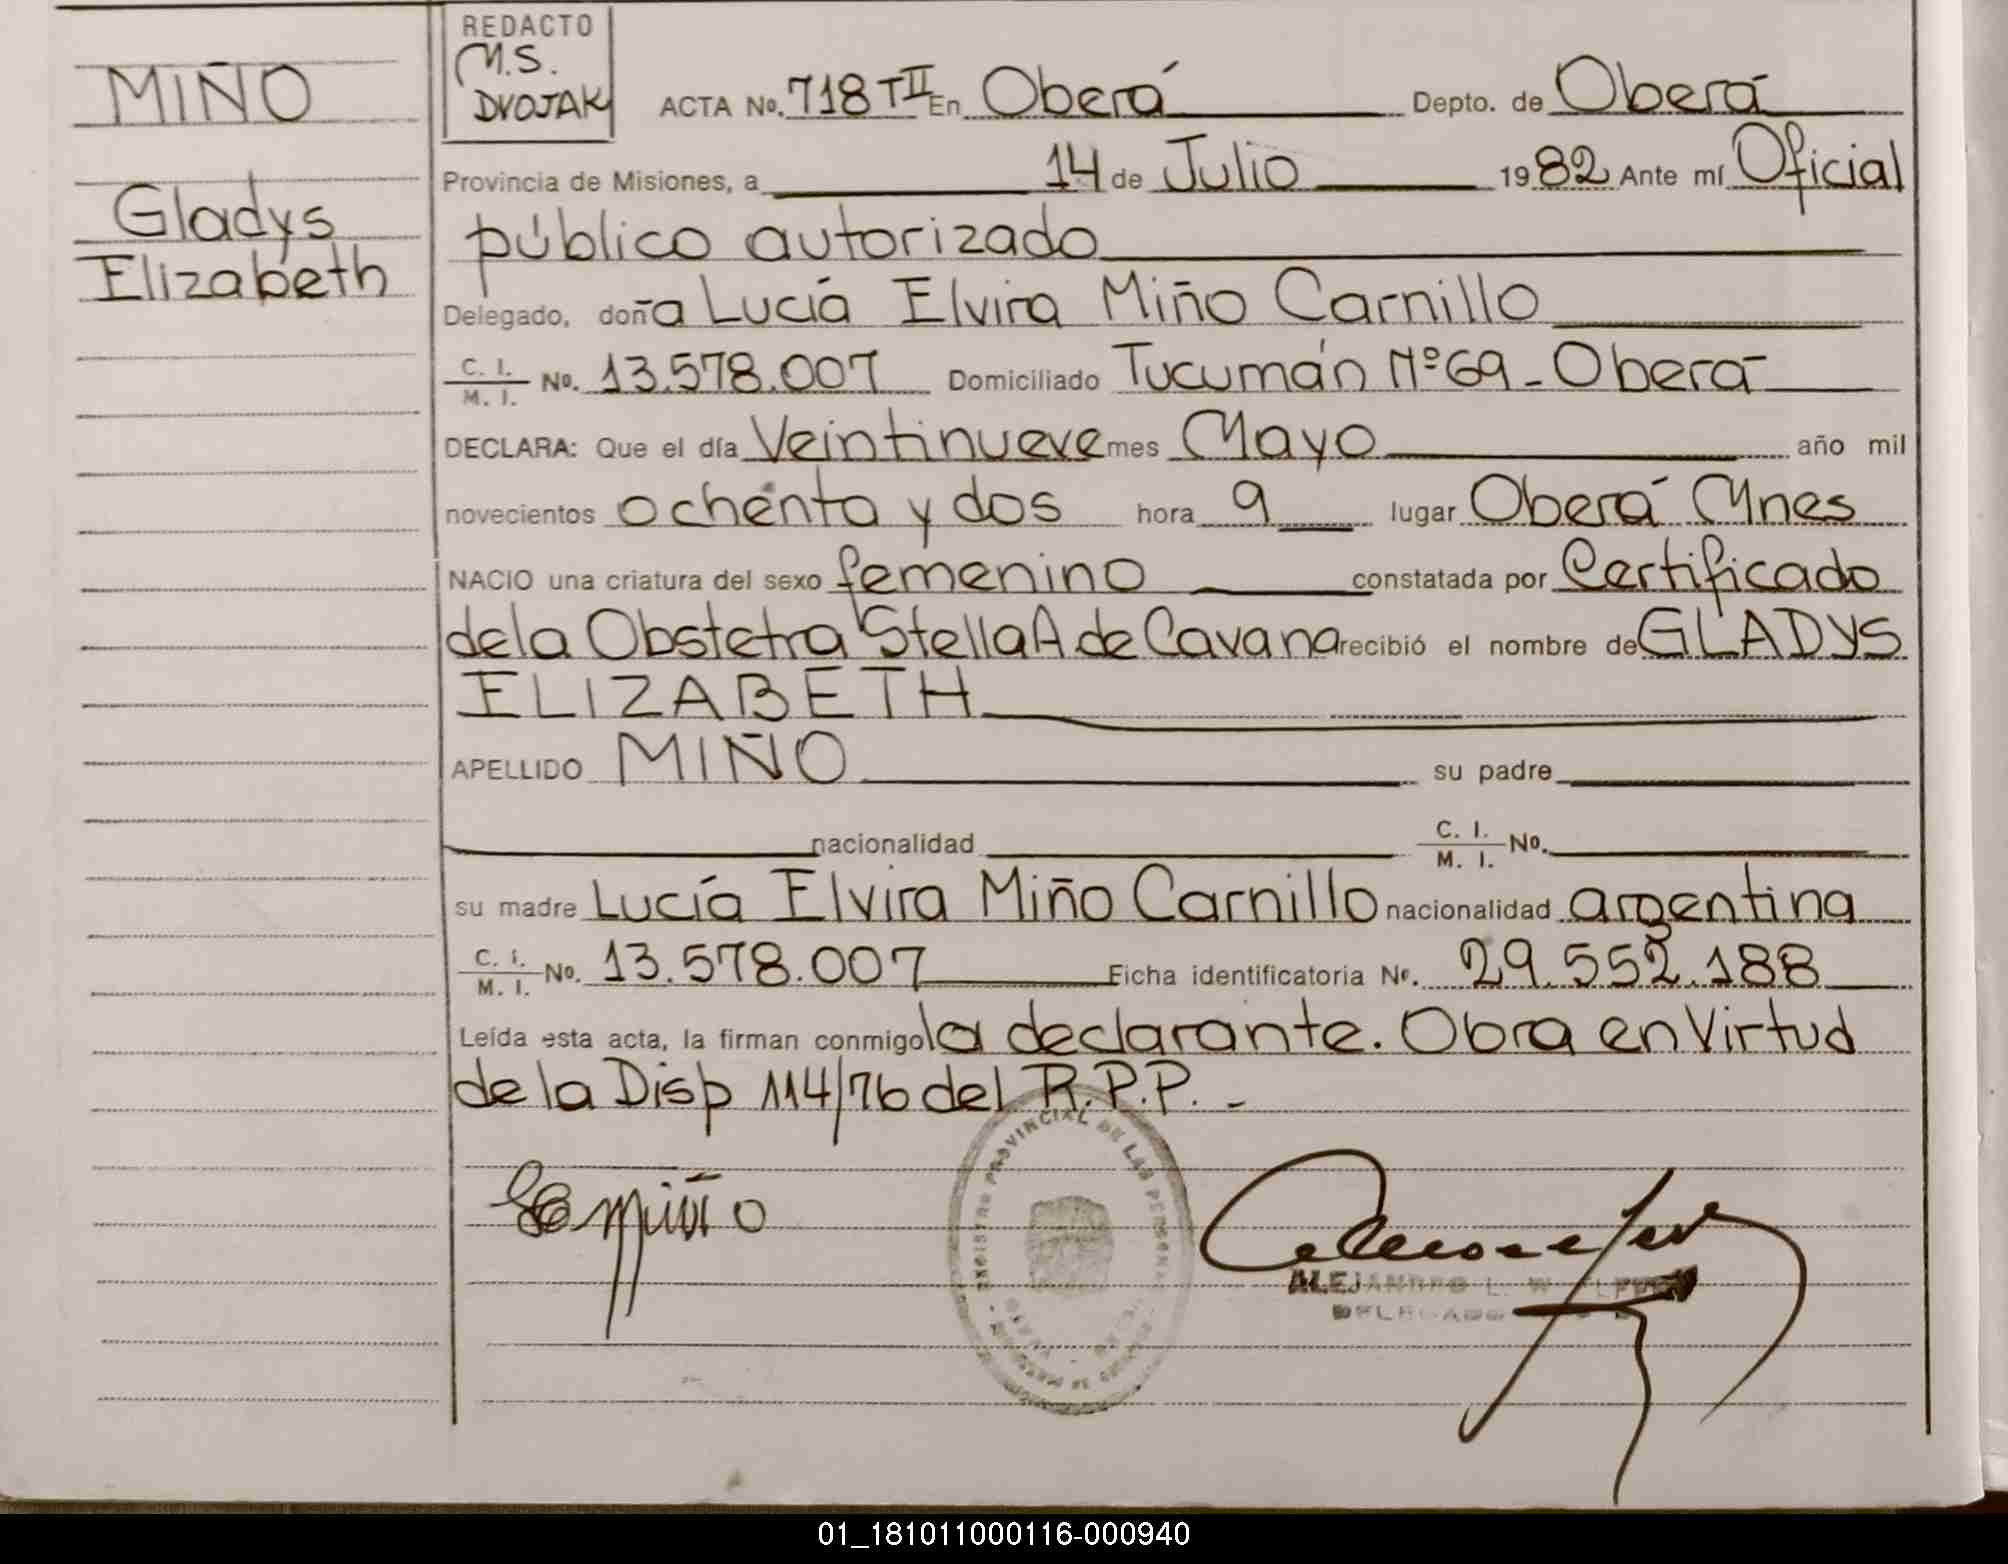 MIÑO
Gladys
Elizabeth
REDACTO
M.S.
DVOJAK
ACTA No. 718 TII En Oberá Depto. de Oberá
Provincia de Misiones, a 14 de Julio 1982 Ante mí Oficial
público autorizado
Delegado, doña Lucía Elvira Miño Carnillo
C. I. M. I. No. 13.578.007 Domiciliado Tucumán Nº 69 - Oberá
DECLARA: Que el día Veintinueve mes Mayo año mil
novecientos ochenta y dos hora 9 lugar Oberá Mnes
NACIO una criatura del sexo femenino constatada por Certificado
de la Obstetra Stella A de Cavana recibió el nombre de GLADYS
ELIZABETH
APELLIDO MIÑO su padre
nacionalidad C. I. M. I. No.
su madre Lucía Elvira Miño Carnillo nacionalidad argentina
C. I. M. I. No. 13.578.007 Ficha identificatoria No. 29.552.188
Leída esta acta, la firman conmigo la declarante. Obra en Virtud
de la Disp 114/76 del R.P.P. -
REGISTRO PROVINCIAL DE LAS PERSONAS
Miño
ALEJANDRO L.
DELEGADO
01_181011000116-000940